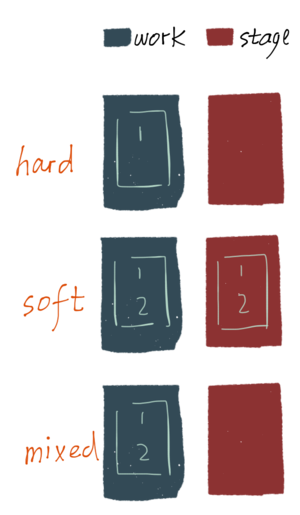 work stage
hard
1
soft
1
2
1
2
mixed
1
2